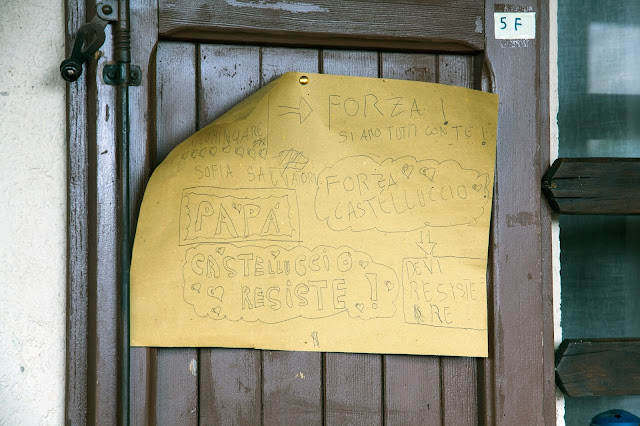 5 F
→ FORZA !
SIAMO TUTTI CON TE !
SOFIA SALVATORI
FORZA
CASTELLUCCIO
PAPÁ
CASTELLUCCIO
RESISTE !
DEVI
RESISTE
RE